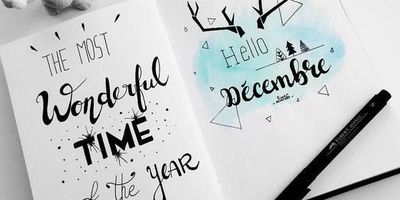 THE MOST
Wonderful
TIME
of the YEAR
Hello
Décembre
2016
FABER-CASTELL